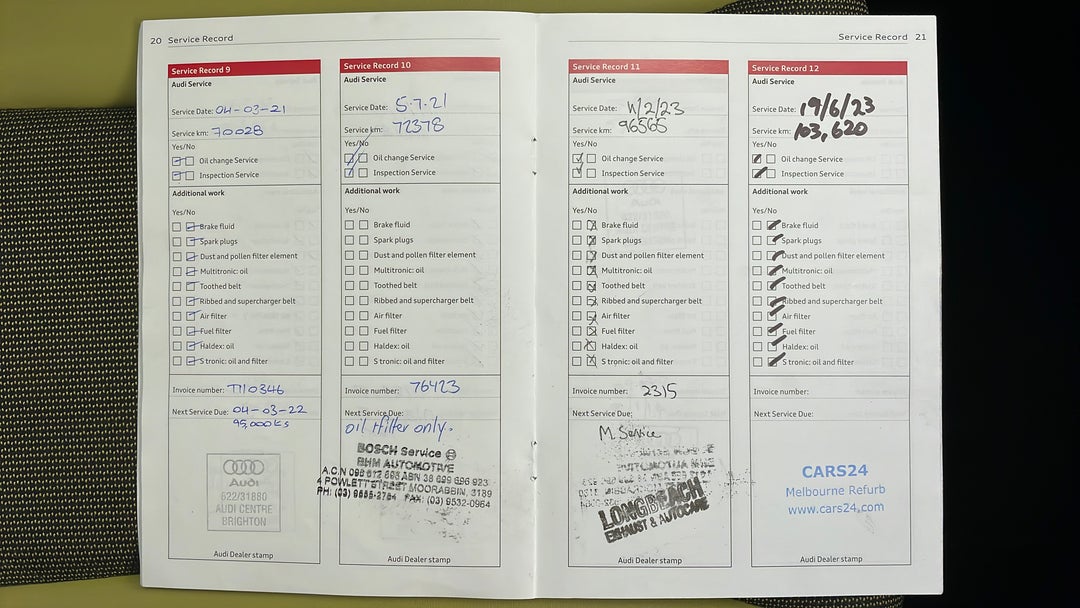 20 Service Record
Service Record 9
Audi Service
Service Date: 04-03-21
Service km: 70028
Yes/No
Oil change Service
Inspection Service
Additional work
Yes/No
Brake fluid
Spark plugs
Dust and pollen filter element
Multitronic: oil
Toothed belt
Ribbed and supercharger belt
Air filter
Fuel filter
Haldex: oil
S tronic: oil and filter
Invoice number: T110346
Next Service Due: 04-03-22
95,000ks
Audi
622/31880
AUDI CENTRE
BRIGHTON
Audi Dealer stamp
Service Record 10
Audi Service
Service Date: 5.7.21
Service km: 72378
Yes/No
Oil change Service
Inspection Service
Additional work
Yes/No
Brake fluid
Spark plugs
Dust and pollen filter element
Multitronic: oil
Toothed belt
Ribbed and supercharger belt
Air filter
Fuel filter
Haldex: oil
S tronic: oil and filter
Invoice number: 76423
Next Service Due:
oil + filter only.
BOSCH Service
BHM AUTOMOTIVE
A.C.N 098 612 698 ABN 38 699 696 923
4 POWLETT STREET MOORABBIN, 3189
PH: (03) 9555-2764 FAX: (03) 9532-0964
Audi Dealer stamp
Service Record 21
Service Record 11
Audi Service
Service Date: 11/2/23
Service km: 96565
Yes/No
Oil change Service
Inspection Service
Additional work
Yes/No
Brake fluid
Spark plugs
Dust and pollen filter element
Multitronic: oil
Toothed belt
Ribbed and supercharger belt
Air filter
Fuel filter
Haldex: oil
S tronic: oil and filter
Invoice number: 2315
Next Service Due:
M. Service
LONGBEACH
EXHAUST & AUTOCARE
Audi Dealer stamp
Service Record 12
Audi Service
Service Date: 19/6/23
Service km: 103,620
Yes/No
Oil change Service
Inspection Service
Additional work
Yes/No
Brake fluid
Spark plugs
Dust and pollen filter element
Multitronic: oil
Toothed belt
Ribbed and supercharger belt
Air filter
Fuel filter
Haldex: oil
S tronic: oil and filter
Invoice number:
Next Service Due:
CARS24
Melbourne Refurb
www.cars24.com
Audi Dealer stamp